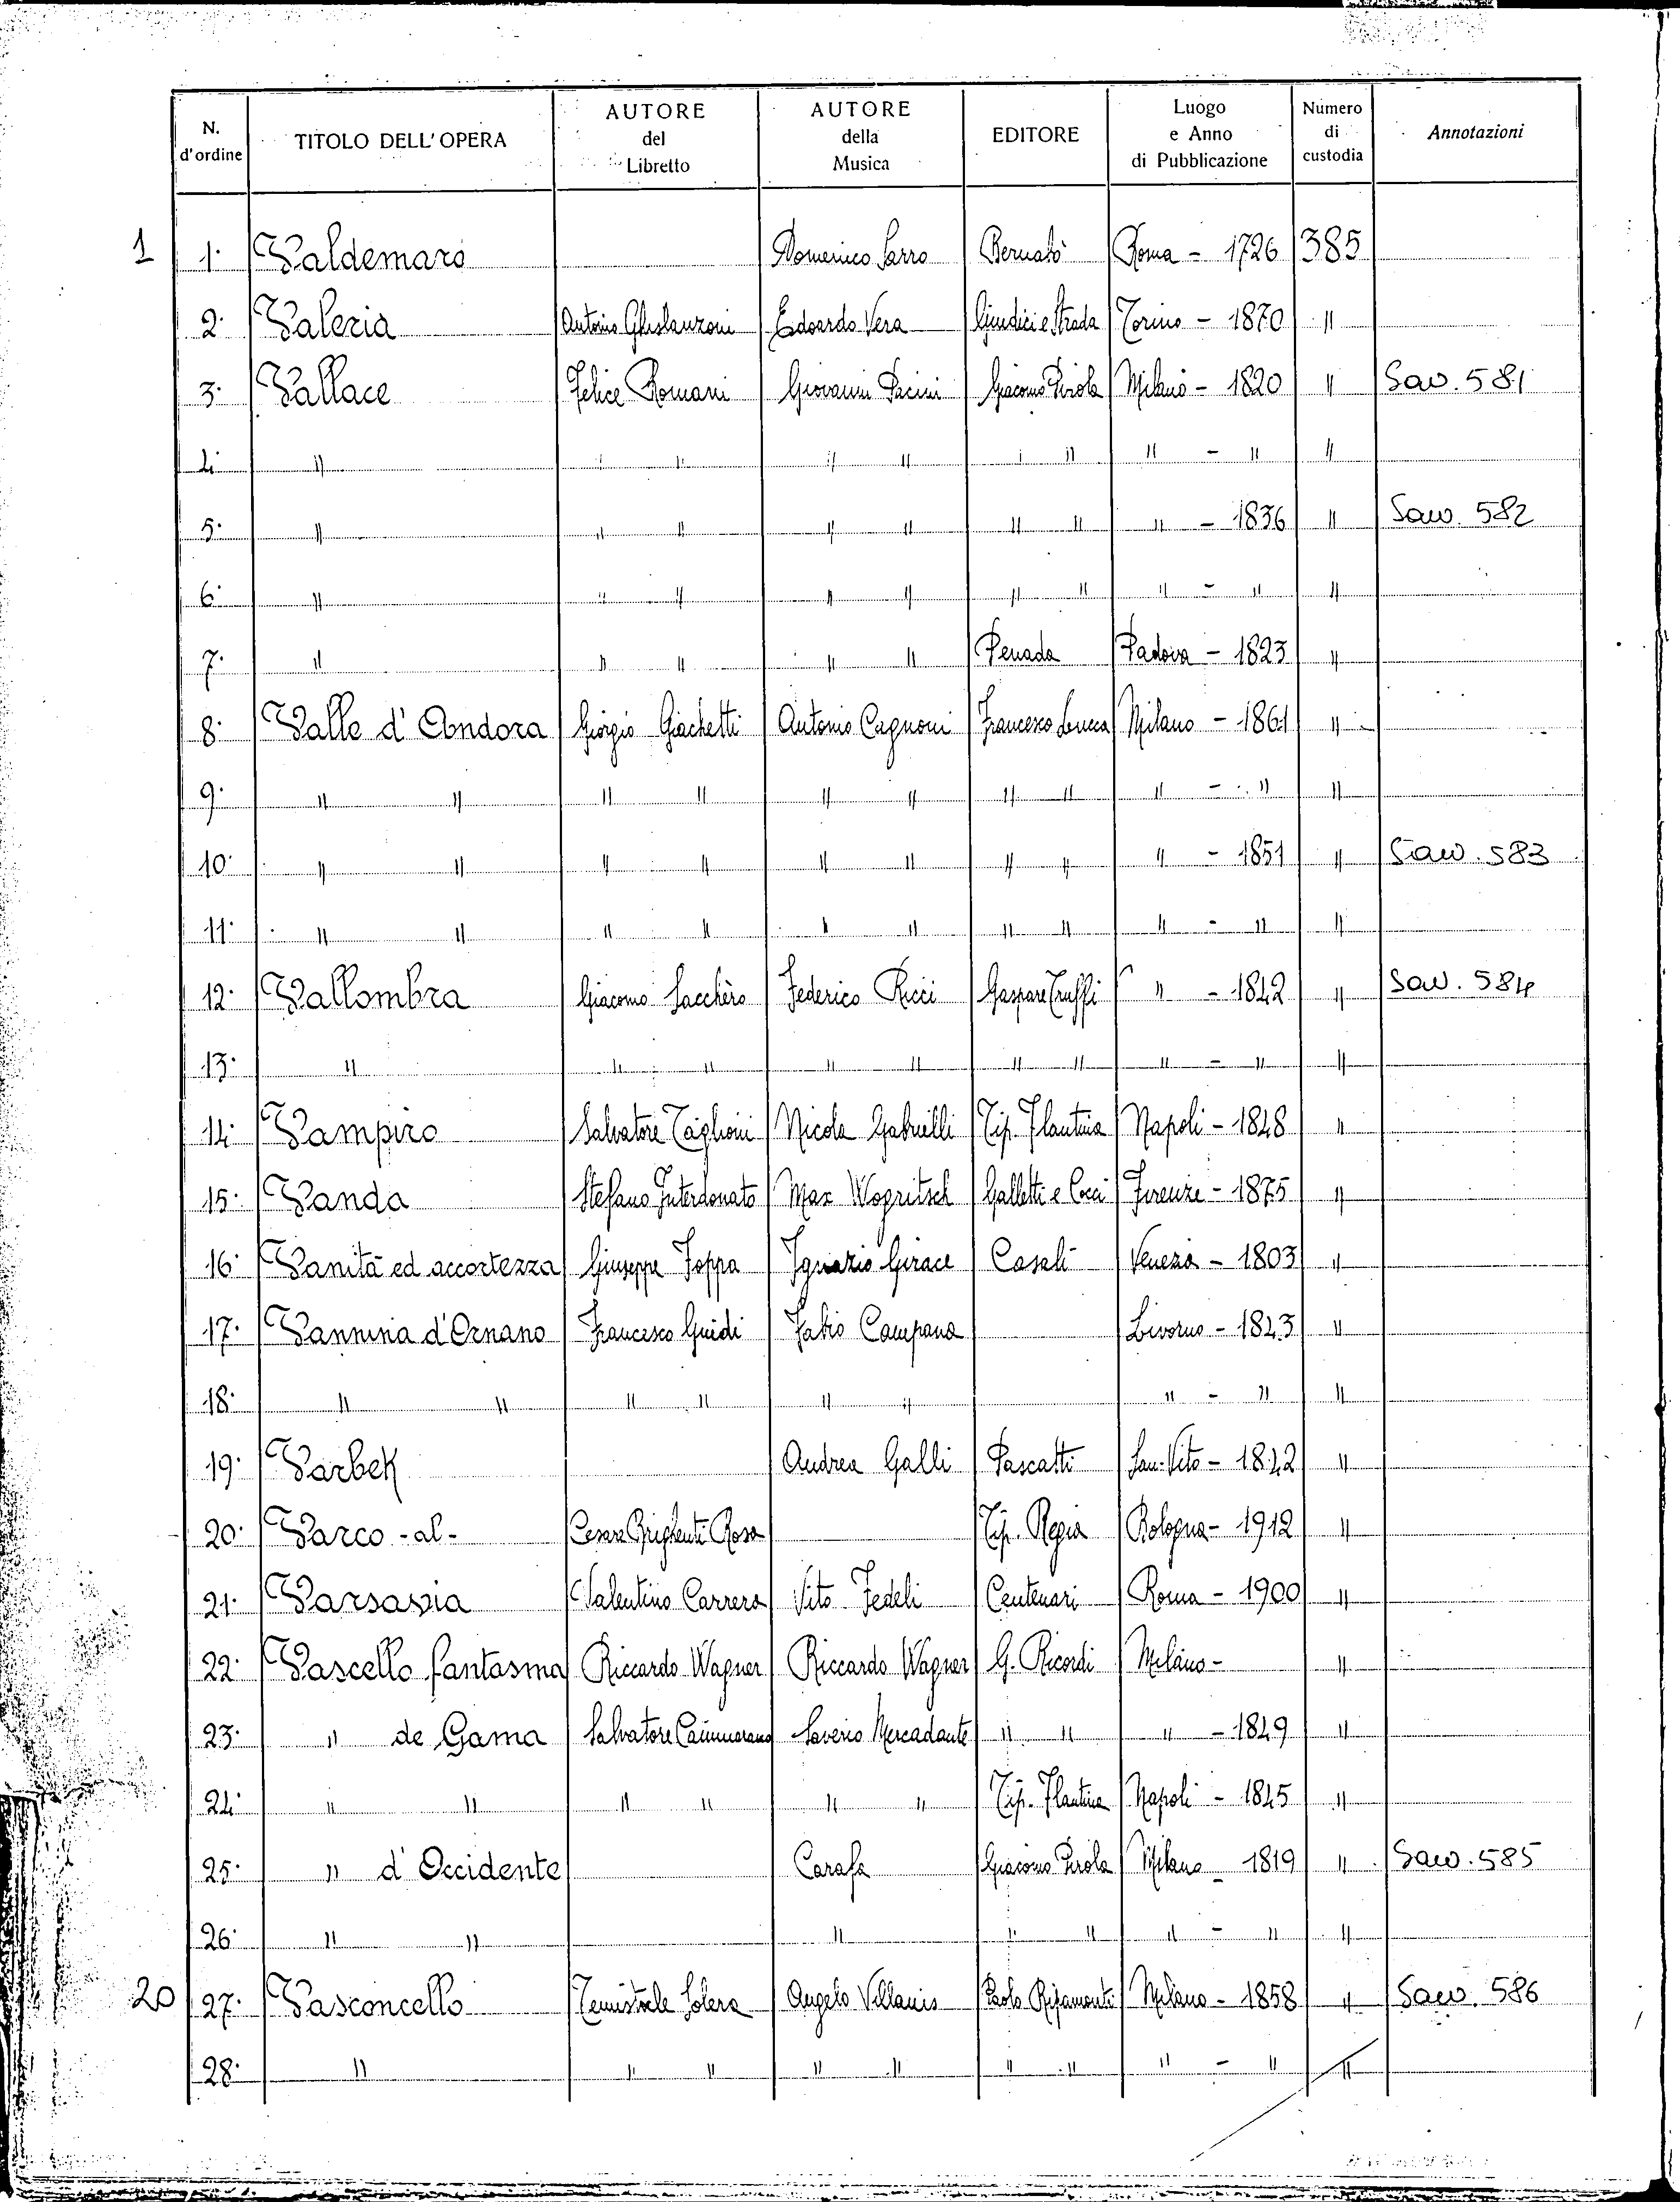 N. d'ordine | TITOLO DELL'OPERA | AUTORE del Libretto | AUTORE della Musica | EDITORE | Luogo e Anno di Pubblicazione | Numero di custodia | Annotazioni
1 1. Valdemaro Domenico Sarro Bernabò Roma - 1726 385
2. Valeria Antonio Ghislanzoni Edoardo Vera Giudici e Strada Torino - 1870 "
3. Vallace Felice Romani Giovanni Pacini Giacomo Pirola Milano - 1820 " Sav. 581
4. " " " " " " " " - " "
5. " " " " " " " " - 1836 " Sav. 582
6. " " " " " " " " - " "
7. " " " " " Penada Padova - 1823 "
8. Valle d'Andora Giorgio Giachetti Antonio Cagnoni Francesco Lucca Milano - 1861 "
9. " " " " " " " " " - " "
10. " " " " " " " " " - 1851 " Sav. 583
11. " " " " " " " " " - " "
12. Vallombra Giacomo Sacchèro Federico Ricci Gaspare Truffi " - 1842 " Sav. 584
13. " " " " " " " " - " "
14. Vampiro Salvatore Taglioni Nicola Gabrielli Tip. Flautina Napoli - 1848 "
15. Vanda Stefano Interdonato Max Wogritsch Galletti e Cocci Firenze - 1875 "
16. Vanità ed accortezza Giuseppe Foppa Ignazio Girace Casali Venezia - 1803 "
17. Vannina d'Ornano Francesco Guidi Fabio Campana Livorno - 1843 "
18. " " " " " " " - " "
19. Varbek Andrea Galli Pascatti San Vito - 1842 "
20. Varco - al - Cesare Brighenti Rosa Tip. Regia Bologna - 1912 "
21. Varsavia Valentino Carrera Vito Fedeli Centenari Roma - 1900 "
22. Vascello fantasma Riccardo Wagner Riccardo Wagner G. Ricordi Milano - "
23. " de Gama Salvatore Cammarano Saverio Mercadante " " " - 1849 "
24. " " " " " " Tip. Flautina Napoli - 1845 "
25. " d'Occidente Carafa Giacomo Pirola Milano - 1819 " Sav. 585
26. " " " " " " - " "
20 27. Vasconcello Temistocle Solera Angelo Villanis Paolo Ripamonti Milano - 1858 " Sav. 586
28. " " " " " " " " - " "